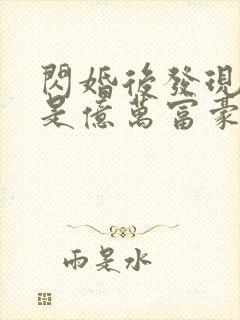 閃婚後發現
是億萬富豪
雨是水